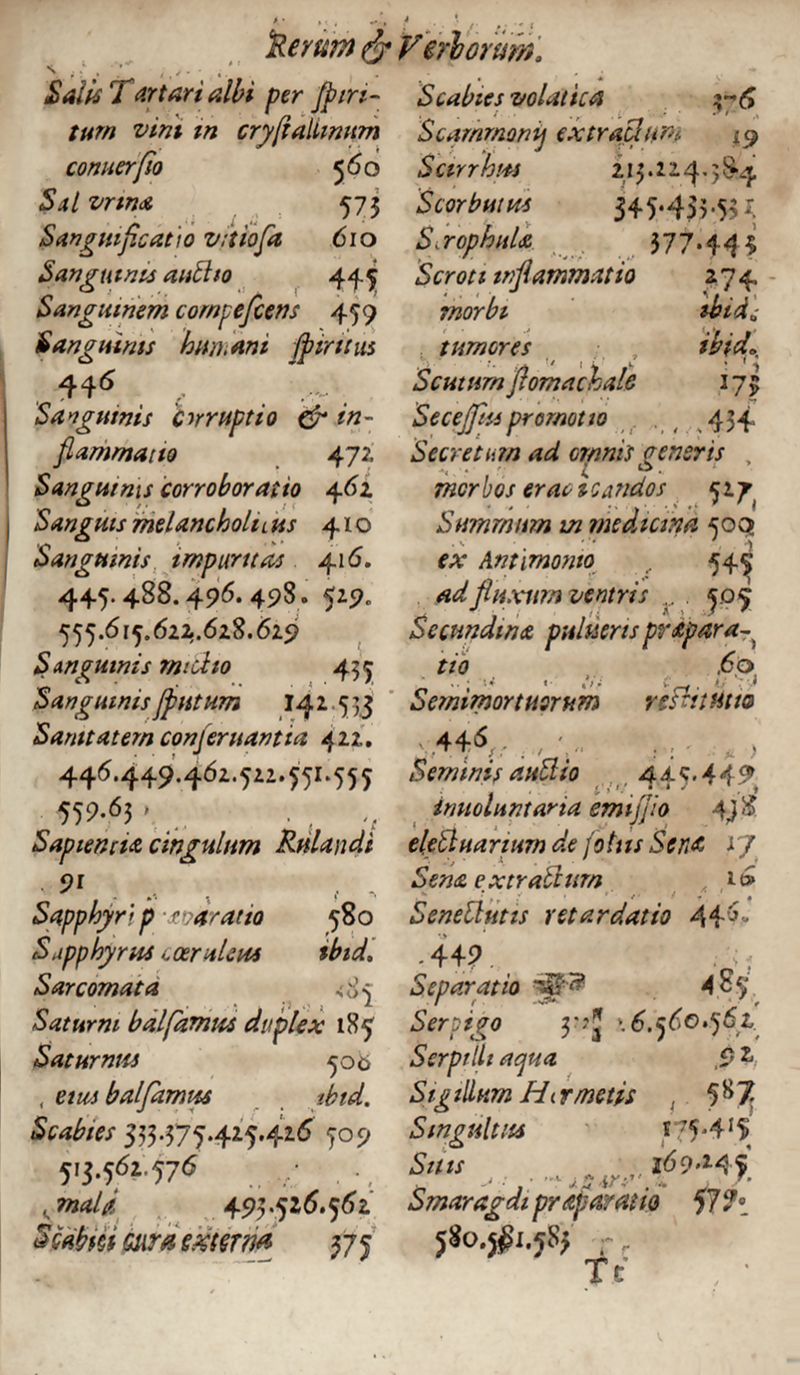 Rerum & Verborum.
Salis Tartari albi per ſpiri-
tum vini in cryſtallinum
conuerſio 560
Sal vrinæ 573
Sanguificatio vitioſa 610
Sanguinis auctio 445
Sanguinem compeſcens 459
Sanguinis humani ſpiritus
446
Sanguinis corruptio & in-
flammatio 472
Sanguinis corroboratio 462
Sanguis melancholicus 410
Sanguinis impuritas 416.
445. 488. 496. 498. 529.
555.615.622.628.629
Sanguinis mictio 435
Sanguinis ſputum 142.533
Sanitatem conſeruantia 422.
446.449.462.522.551.555
559.63
Sapientiæ cingulum Rulandi
91
Sapphyri præparatio 580
Sapphyrus cœruleus ibid.
Sarcomata
Saturni balſamus duplex 185
Saturnus 506
eius balſamus ibid.
Scabies 333.375.425.426 509
513.562.576
mala 493.526.562
Scabiei cura externa 375
Scabies volatica 376
Scammonij extractum 19
Scirrhus 213.224.384
Scorbutus 345.433.531
Scrophulæ 377.443
Scroti inflammatio 274
morbi ibid.
tumores ibid.
Scutum ſtomachale 175
Seceſſus promotio 434
Secretum ad omnis generis
morbos eradicandos 527
Summum in medicina 500
ex Antimonio 545
ad fluxum ventris 505
Secundinæ pulueris præpara-
tio 60
Semimortuorum reſtitutio
446
Seminis auctio 445.449
inuoluntaria emiſſio 438
electuarium de foliis Senæ 17
Senæ extractum 16
Senectutis retardatio 446.
449
Separatio 485
Serpigo 6.560.562
Serpilli aqua 92
Sigillum Hermetis 587
Singultus 175.415
Sitis 169.245
Smaragdi præparatio 579.
580.581.583
Tt